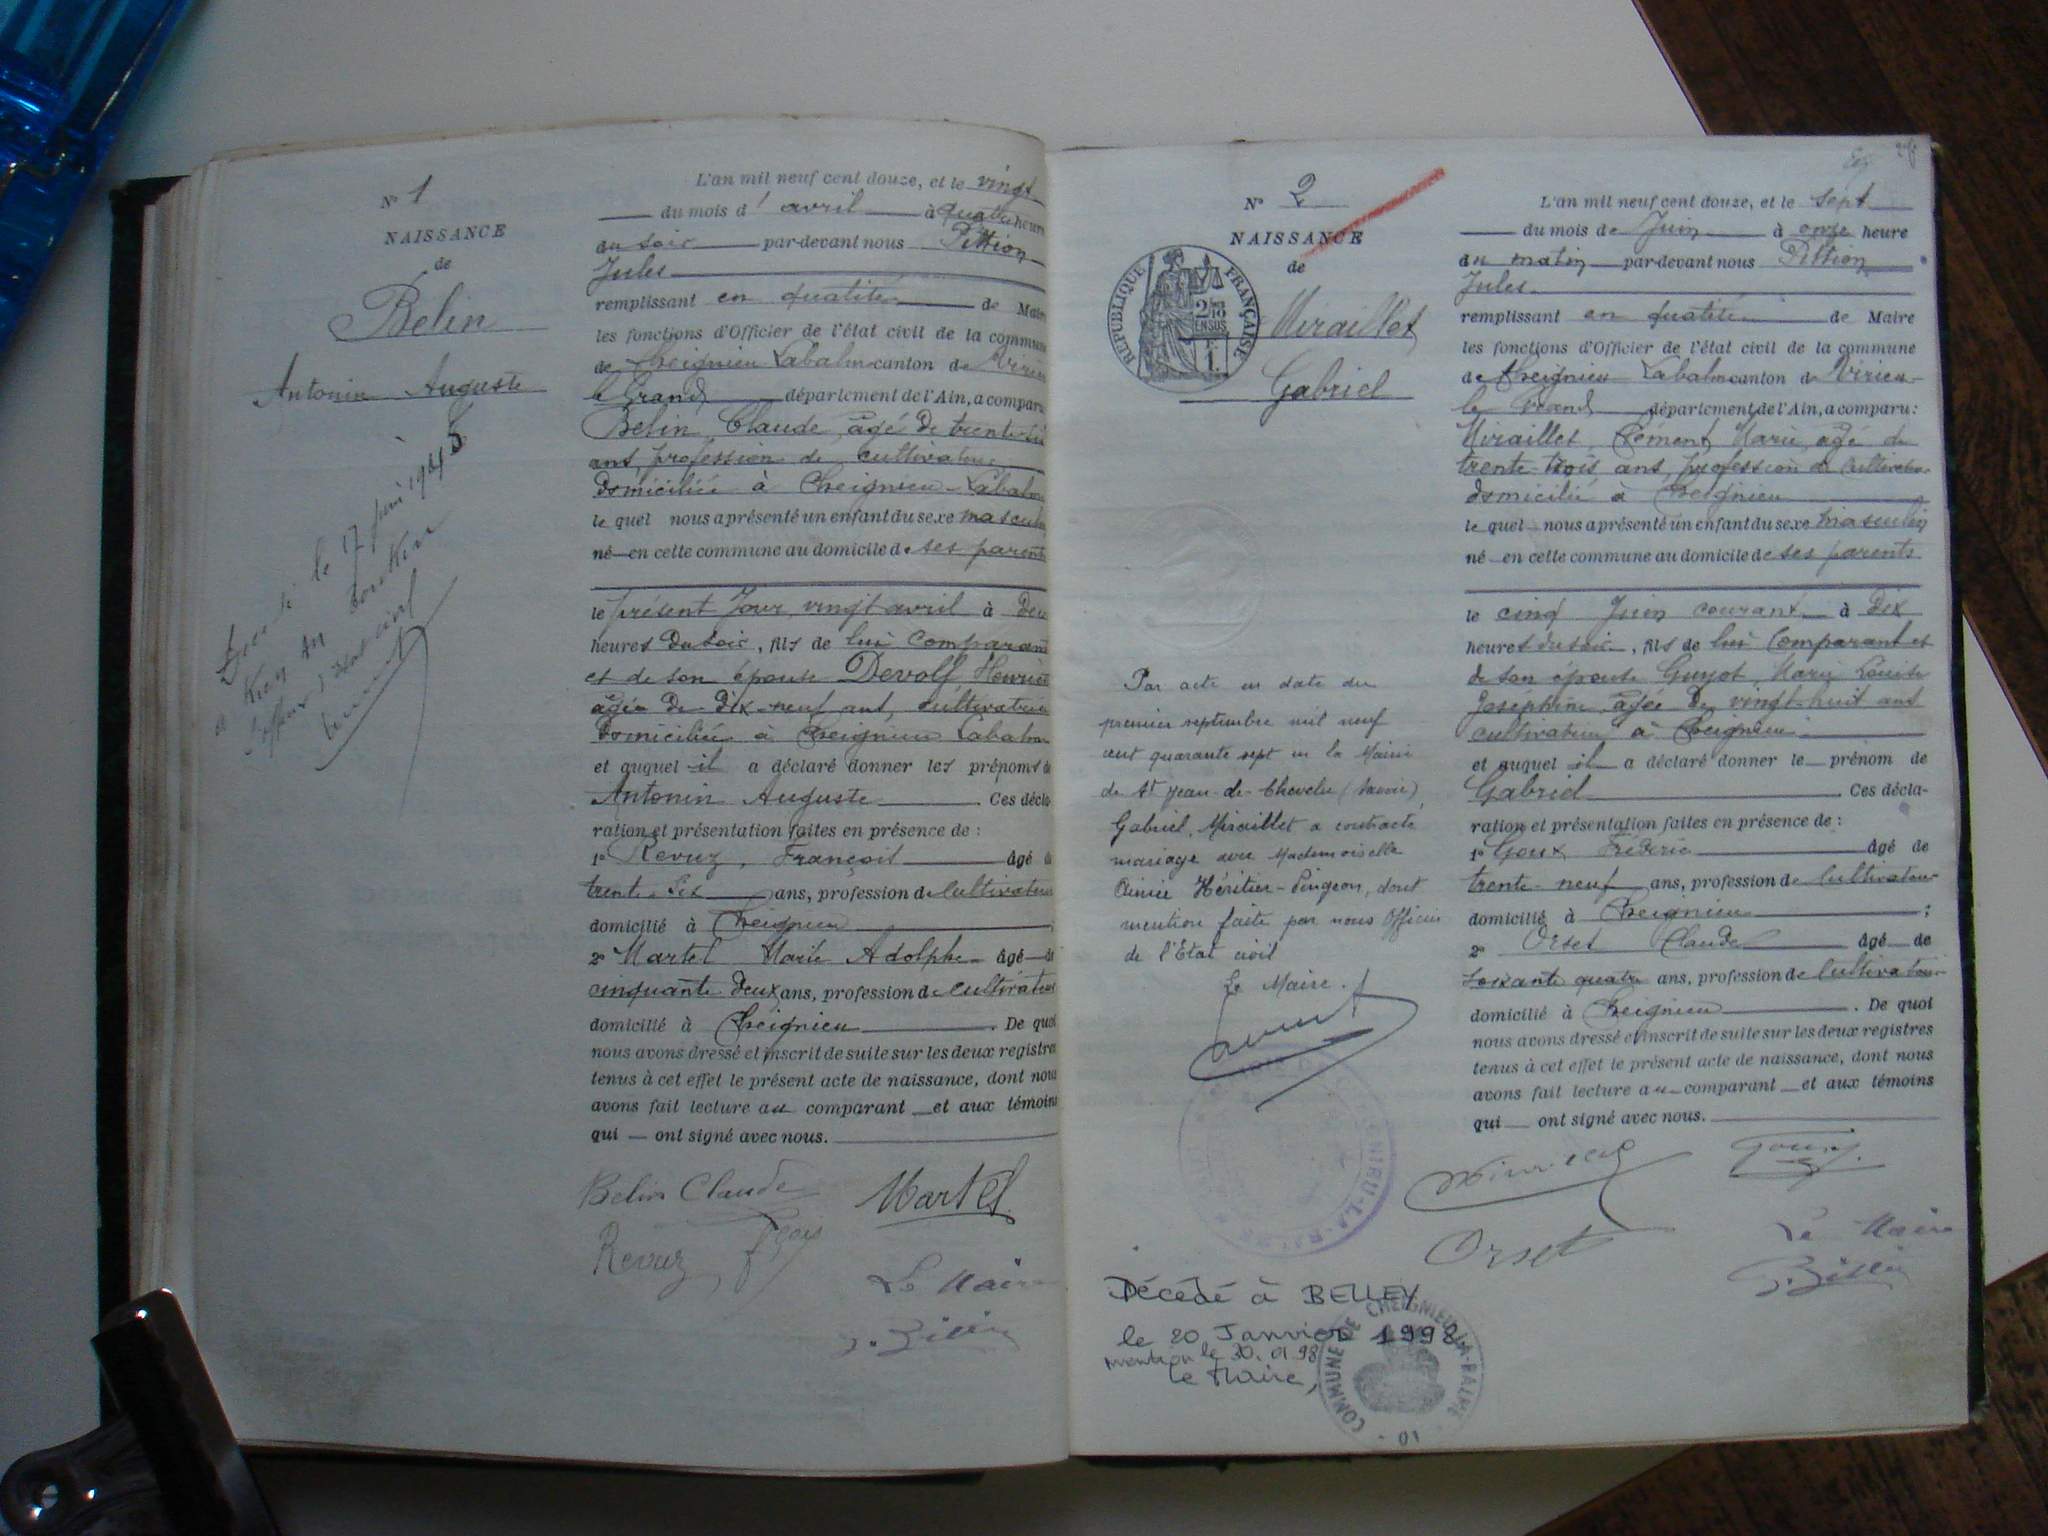 N° 1
NAISSANCE
de
Belin
Antonin Auguste
le 17 juin 1945
L'an mil neuf cent douze, et le vingt
du mois d'avril à quatre heure
du soir par-devant nous Pittion
Jules
remplissant en qualité de Maire
les fonctions d'Officier de l'état civil de la commune
de Cheignieu Labalme canton de Virieu
le Grand département de l'Ain, a comparu
Belin Claude, agé de trente-six
ans, profession de cultivateur
domicilié à Cheignieu-Labalme
le quel nous a présenté un enfant du sexe masculin
né en cette commune au domicile de ses parents
le présent jour, vingt avril à deux
heures du soir, fils de lui comparant
et de son épouse Devolf Henriette
agée de dix-neuf ans, cultivatrice
domiciliée à Cheignieu Labalme
et auquel il a déclaré donner les prénoms de
Antonin Auguste. Ces décla-
ration et présentation faites en présence de :
1° Revuz, François âgé de
trente-six ans, profession de cultivateur
domicilié à Cheignieu ;
2° Martel Marie Adolphe âgé de
cinquante deux ans, profession de cultivateur
domicilié à Cheignieu. De quoi
nous avons dressé et inscrit de suite sur les deux registres
tenus à cet effet le présent acte de naissance, dont nous
avons fait lecture au comparant et aux témoins
qui ont signé avec nous.
Belin Claude Martel
Revuz fçois
Le Maire
N° 2
NAISSANCE
de
REPUBLIQUE FRANÇAISE
2/10 EN SUS
1 F.
Miraillet
Gabriel
Par acte en date du
premier septembre mil neuf
cent quarante sept en la Mairie
de St Jean-de-Chevelu (Savoie)
Gabriel, Miraillet a contracté
mariage avec Mademoiselle
Aimée Héritier-Pingeon, dont
mention faite par nous Officier
de l'Etat civil
Le Maire.
Décédé à BELLEY
le 20 Janvier 1998
mention le 30.01.98
le Maire,
COMMUNE DE CHEIGNIEU-LA-BALME
- 01 -
L'an mil neuf cent douze, et le sept
du mois de Juin à onze heure
du matin par-devant nous Pittion
Jules
remplissant en qualité de Maire
les fonctions d'Officier de l'état civil de la commune
de Cheignieu Labalme canton de Virieu-
le Grand département de l'Ain, a comparu :
Miraillet, Clément Marie, agé de
trente-trois ans, profession de cultivateur
domicilié à Cheignieu
le quel nous a présenté un enfant du sexe masculin
né en cette commune au domicile de ses parents
le cinq Juin courant à dix
heures du soir, fils de lui comparant et
de son épouse Guyot, Marie Louise
Joséphine, agée de vingt-huit ans
cultivatrice à Cheignieu.
et auquel il a déclaré donner le prénom de
Gabriel. Ces décla-
ration et présentation faites en présence de :
1° Goux Frédéric âgé de
trente-neuf ans, profession de cultivateur
domicilié à Cheignieu ;
2° Orset Claude âgé de
soixante quatre ans, profession de cultivateur
domicilié à Cheignieu. De quoi
nous avons dressé et inscrit de suite sur les deux registres
tenus à cet effet le présent acte de naissance, dont nous
avons fait lecture au comparant et aux témoins
qui ont signé avec nous.
Orset
Le Maire